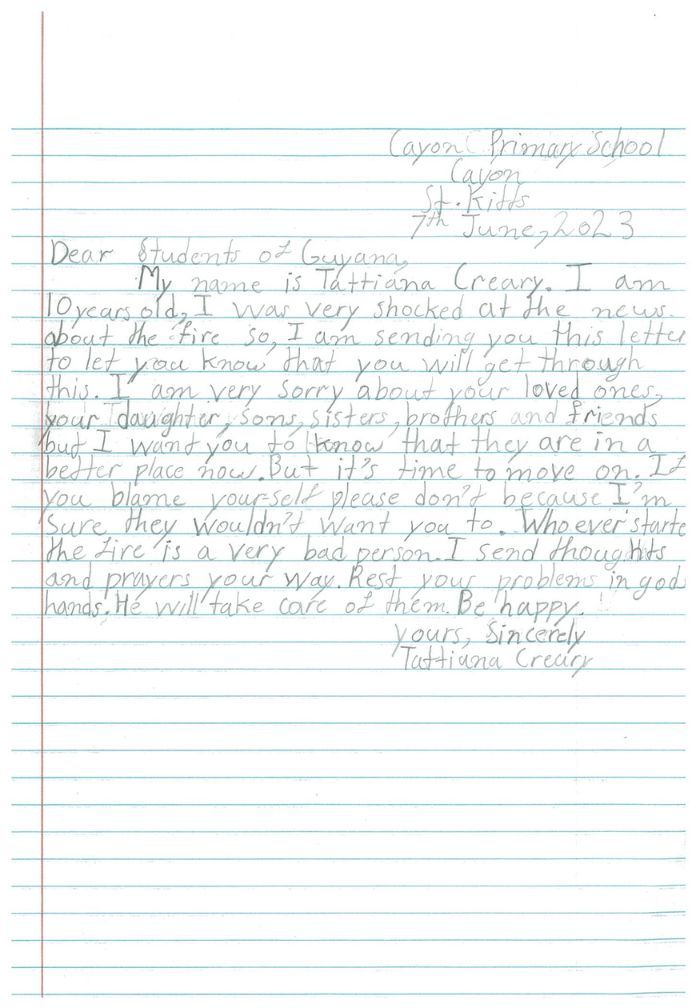 Cayon Primary School
Cayon
St. Kitts
7th June, 2023
Dear Students of Guyana,
My name is Tattiana Creary. I am
10 years old, I was very shocked at the news.
about the fire so, I am sending you this letter
to let you know that you will get through
this. I am very sorry about your loved ones,
your daughter, sons, sisters, brothers and friends
but I want you to know that they are in a
better place now. But it's time to move on. If
you blame your-self please don't because I'm
sure they wouldn't want you to. Who ever starte
the fire is a very bad person. I send thoughts
and prayers your way. Rest your problems in god
hands. He will take care of them. Be happy.
yours, Sincerely
Tattiana Creary